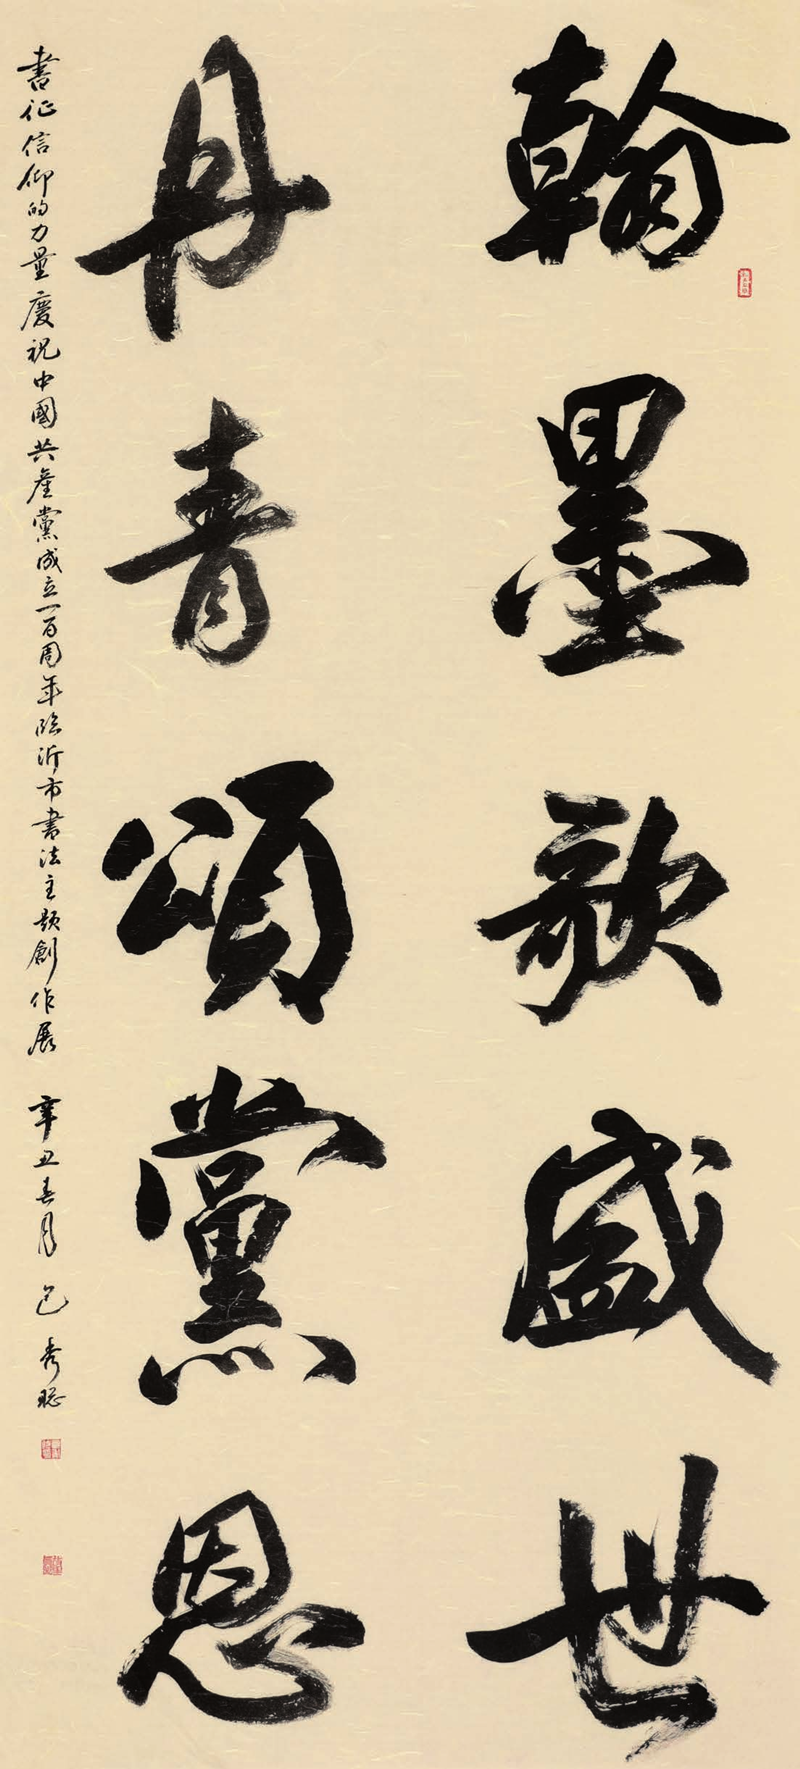 翰墨歌盛世
丹青頌黨恩
書征信仰的力量慶祝中國共產黨成立一百周年臨沂市書法主題創作展 辛丑春月 包秀聰